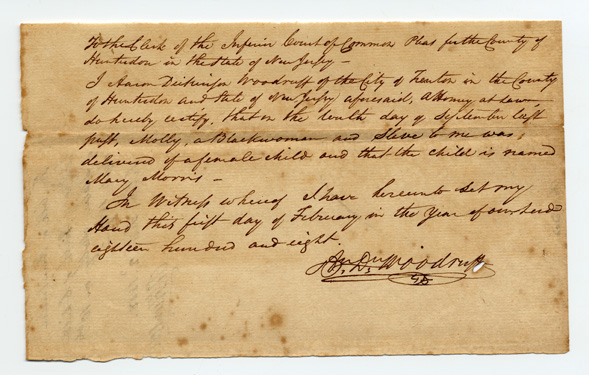 To the Clerk of the Inferior Court of Common Pleas for the County of
Hunterdon in the State of New Jersey –
I Aaron Dickinson Woodruff of the City of Trenton in the County
of Hunterdon and State of New Jersey aforesaid, Attorney at Law –
do hereby certify, that on the tenth day of September last
past, Molly, a Black woman and Slave to me was,
delivered of a female child and that the child is named
Mary Morris –
In Witness whereof I have hereunto set my
Hand this first day of February, in the Year of our Lord
eighteen hundred and eight.
An. Dn. Woodruff